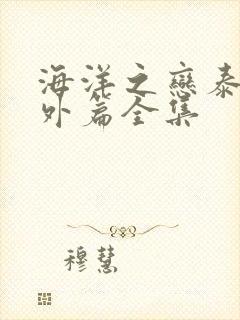 海洋之戀泰
外篇全集
穆慧